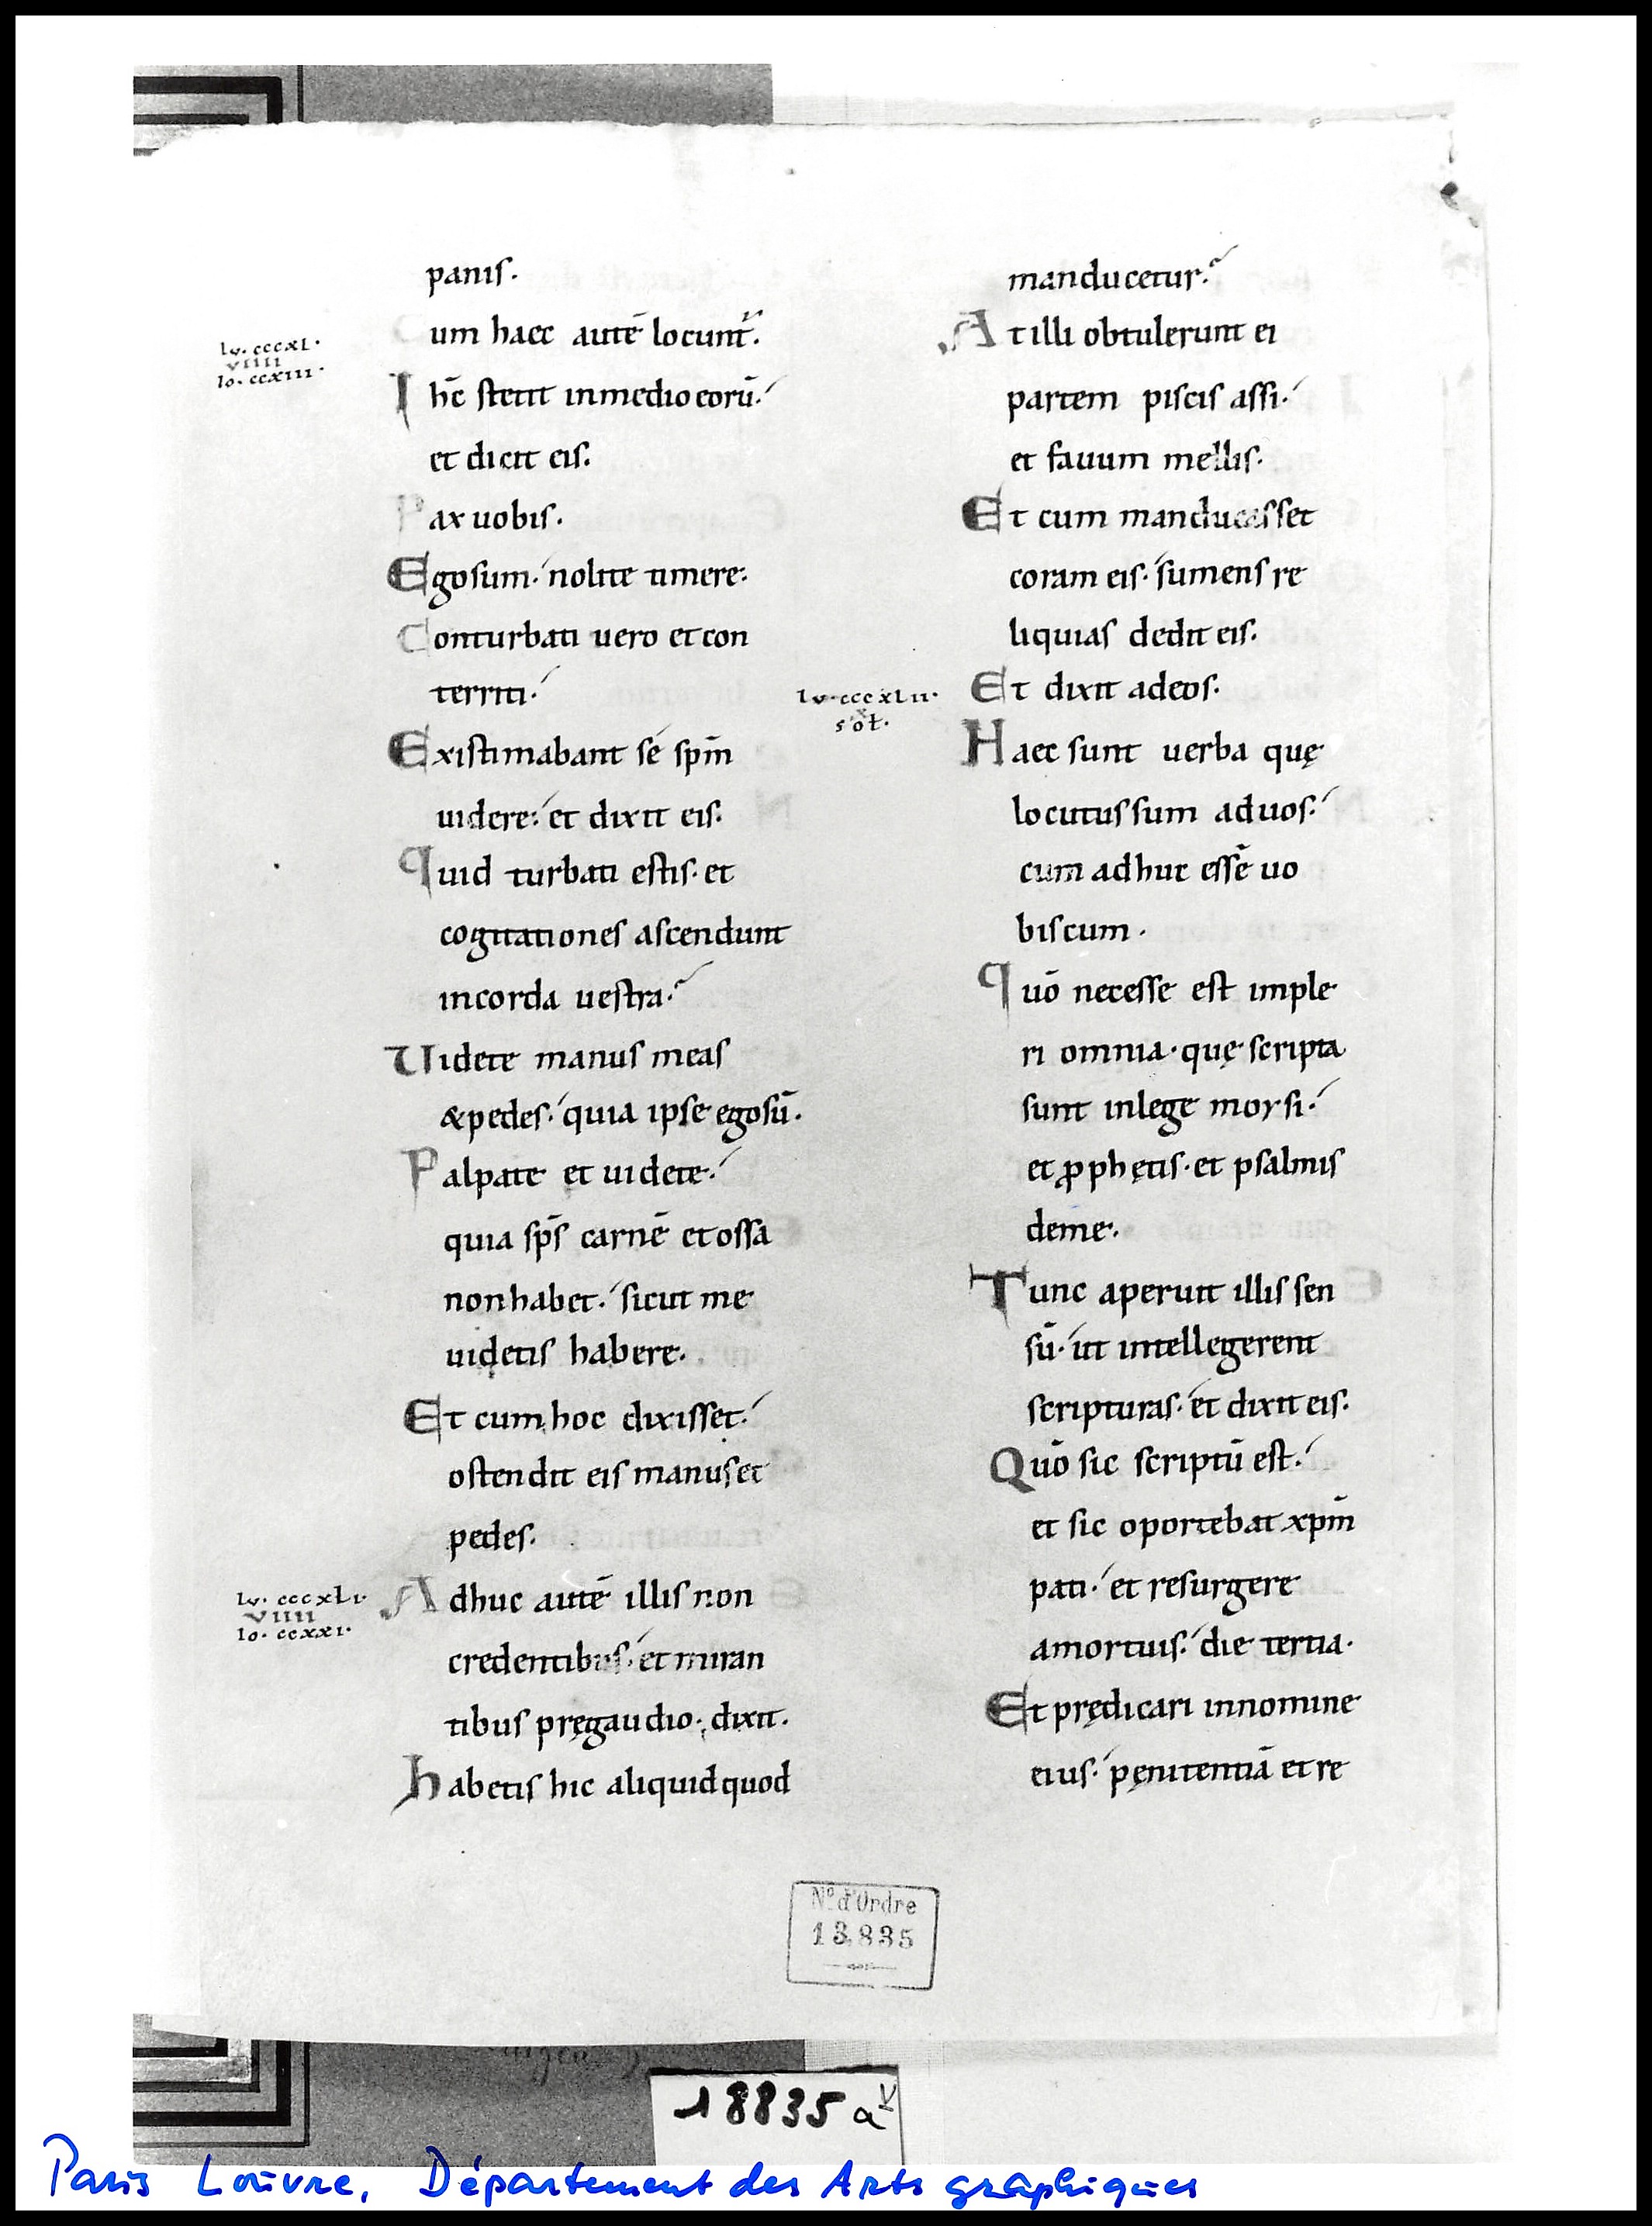 panis.
Cum haec autē locunt̄.
Ihē stetit inmedio eorū.
et dicit eis.
Pax uobis.
Ego sum. nolite timere.
Conturbati uero et con
territi.
Existimabant sé spm̄
uidere. et dixit eis.
Quid turbati estis. et
cogitationes ascendunt
incorda uestra.
Uidete manus meas
&pedes. quia ipse ego sū.
Palpate et uidete.
quia sp̄s carnē et ossa
non habet. sicut me
uidetis habere.
Et cum hoc dixisset.
ostendit eis manus et
pedes.
Adhuc autē illis non
credentibus. et miran
tibus pręgaudio. dixit.
habetis hic aliquid quod
lv. cccxl.
viiii
Io. ccxiii.
lv. cccxli.
viiii
Io. ccxxi.
manducetur.
At illi obtulerunt ei
partem piscis assi.
et fauum mellis.
Et cum manducasset
coram eis. sumens re
liquias dedit eis.
Et dixit adeos.
Haec sunt uerba quę
locutus sum aduos.
cum adhuc essē uo
biscum.
Quō necesse est imple
ri omnia. quę scripta
sunt inlege moysi.
et ꝓphętis. et psalmis
deme.
Tunc aperuit illis sen
sū. ut intellegerent
scripturas. et dixit eis.
Quō sic scriptū est.
et sic oportebat xpm̄
pati. et resurgere
amortuis. die tertia.
Et prędicari innomine
eius. pęnitentiā et re
lv. cccxlii.
x
sol.
N.º d'Ordre
13,835
18835 a v
Paris Louvre, Département des Arts graphiques